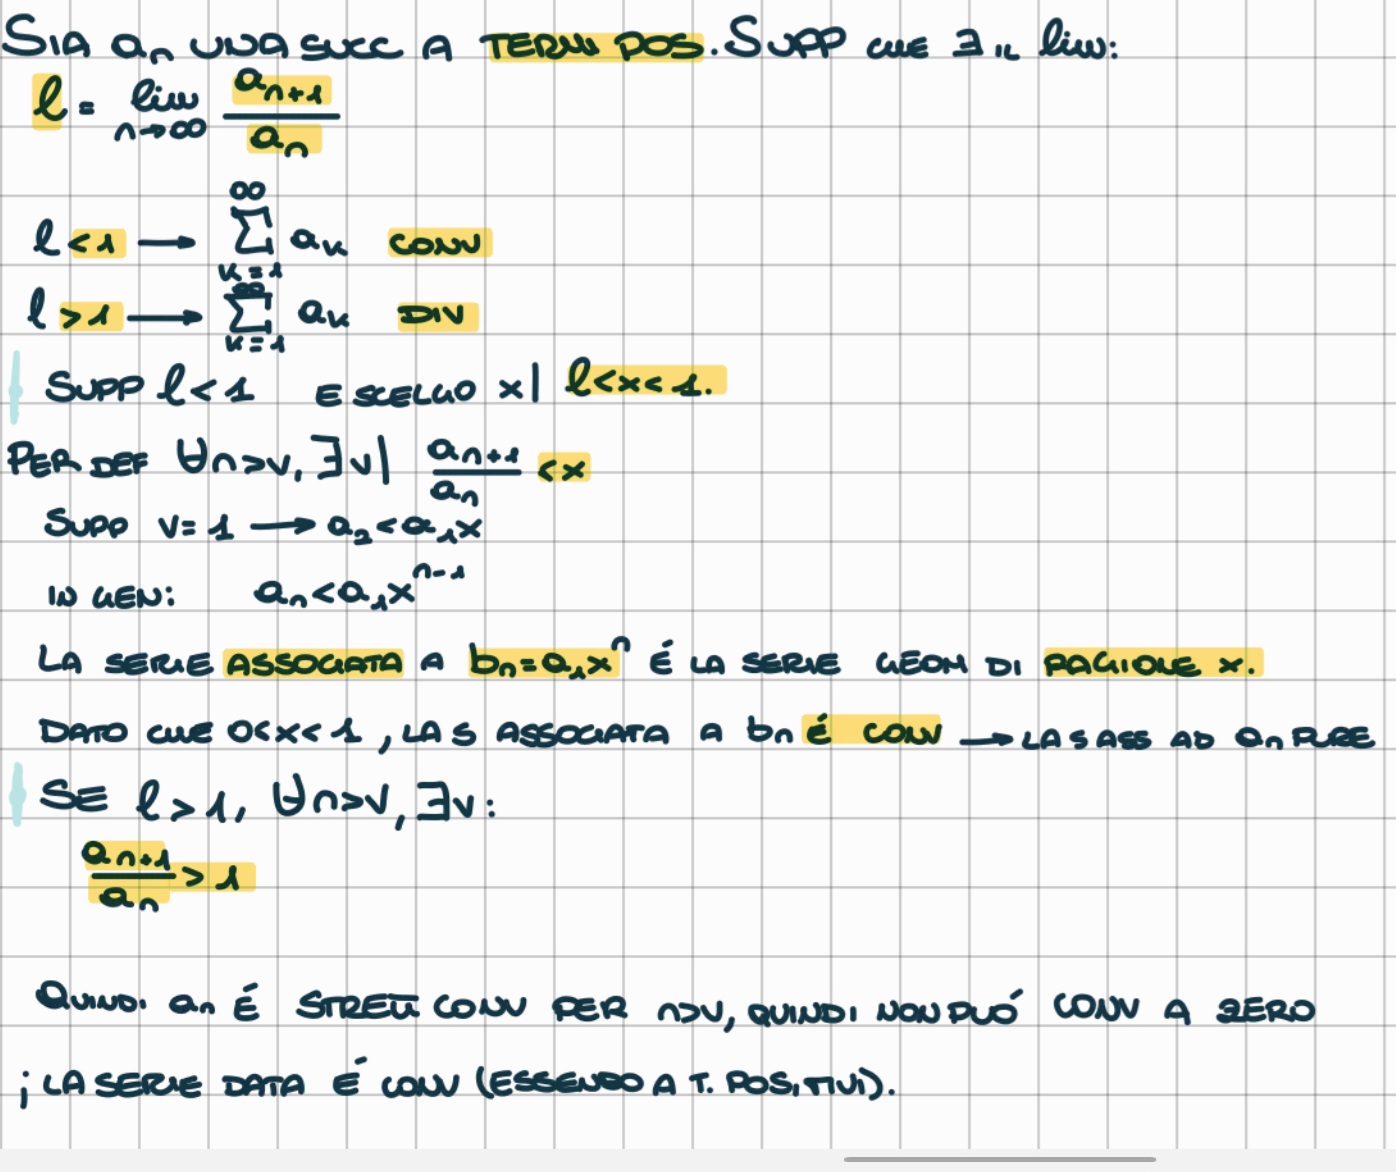 SIA aₙ UNA SUCC A TERMI POS. SUPP CHE ∃ IL lim:
l = lim n→∞ aₙ₊₁ / aₙ
l < 1 → ∑ k=1 ∞ aₖ CONV
l > 1 → ∑ k=1 ∞ aₖ DIV
SUPP l < 1 E SCELGO x | l < x < 1.
PER DEF ∀n>ν, ∃ν | aₙ₊₁ / aₙ < x
SUPP ν = 1 → a₂ < a₁x
IN GEN: aₙ < a₁xⁿ⁻¹
LA SERIE ASSOCIATA A bₙ = a₁xⁿ É LA SERIE GEOM DI RAGIONE x.
DATO CHE 0<x<1, LA S ASSOCIATA A bₙ É CONV → LA S ASS AD aₙ PURE
SE l > 1, ∀n>ν, ∃ν:
aₙ₊₁ / aₙ > 1
QUINDI aₙ É STRETT CONV PER n>ν, QUINDI NON PUÓ CONV A ZERO
; LA SERIE DATA É CONV (ESSENDO A T. POSITIVI).